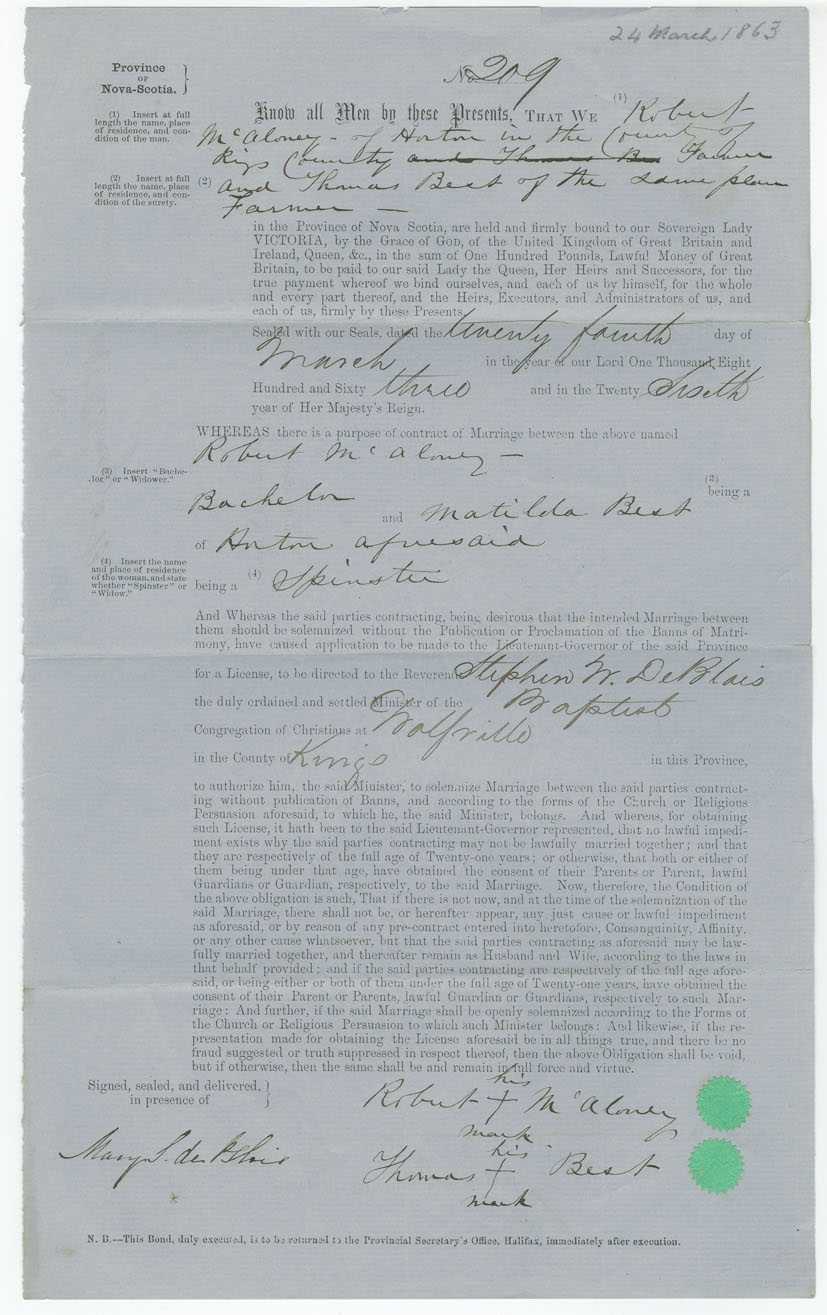 24 March 1863
Province
OF
Nova-Scotia.
No. 209
Know all Men by these Presents, THAT WE (1) Robert
(1) Insert at full length the name, place of residence, and condition of the man.
McAloney - of Horton in the County of
Kings County and Thomas Be Farmer
(2) Insert at full length the name, place of residence, and condition of the surety.
(2) and Thomas Best of the same place
Farmer —
in the Province of Nova Scotia, are held and firmly bound to our Sovereign Lady
VICTORIA, by the Grace of GOD, of the United Kingdom of Great Britain and
Ireland, Queen, &c., in the sum of One Hundred Pounds, Lawful Money of Great
Britain, to be paid to our said Lady the Queen, Her Heirs and Successors, for the
true payment whereof we bind ourselves, and each of us by himself, for the whole
and every part thereof, and the Heirs, Executors, and Administrators of us, and
each of us, firmly by these Presents.
Sealed with our Seals, dated the twenty fourth day of
March in the year of our Lord One Thousand Eight
Hundred and Sixty three and in the Twenty Sixth
year of Her Majesty's Reign.
WHEREAS there is a purpose of contract of Marriage between the above named
Robert McAloney —
(3) Insert "Bachelor" or "Widower."
(3)
being a
Bachelor and Matilda Best
of Horton aforesaid
(4) Insert the name and place of residence of the woman, and state whether "Spinster" or "Widow."
being a (4) Spinster
And Whereas the said parties contracting, being desirous that the intended Marriage between
them should be solemnized without the Publication or Proclamation of the Banns of Matri-
mony, have caused application to be made to the Lieutenant-Governor of the said Province
for a License, to be directed to the Reverend Stephen W. DeBlois
the duly ordained and settled Minister of the Baptist
Congregation of Christians at Wolfville
in the County of Kings in this Province,
to authorize him, the said Minister, to solemnize Marriage between the said parties contract-
ing without publication of Banns, and according to the forms of the Church or Religious
Persuasion aforesaid, to which he, the said Minister, belongs. And whereas, for obtaining
such License, it hath been to the said Lieutenant-Governor represented, that no lawful impedi-
ment exists why the said parties contracting may not be lawfully married together; and that
they are respectively of the full age of Twenty-one years; or otherwise, that both or either of
them being under that age, have obtained the consent of their Parents or Parent, lawful
Guardians or Guardian, respectively, to the said Marriage. Now, therefore, the Condition of
the above obligation is such, That if there is not now, and at the time of the solemnization of the
said Marriage, there shall not be, or hereafter appear, any just cause or lawful impediment
as aforesaid, or by reason of any pre-contract entered into heretofore, Consanguinity, Affinity,
or any other cause whatsoever, but that the said parties contracting as aforesaid may be law-
fully married together, and thereafter remain as Husband and Wife, according to the laws in
that behalf provided; and if the said parties contracting are respectively of the full age afore-
said, or being either or both of them under the full age of Twenty-one years, have obtained the
consent of their Parent or Parents, lawful Guardian or Guardians, respectively to such Mar-
riage: And further, if the said Marriage shall be openly solemnized according to the Forms of
the Church or Religious Persuasion to which such Minister belongs: And likewise, if the re-
presentation made for obtaining the License aforesaid be in all things true, and there be no
fraud suggested or truth suppressed in respect thereof, then the above Obligation shall be void,
but if otherwise, then the same shall be and remain in full force and virtue.
Signed, sealed, and delivered,
in presence of
his
Robert + McAloney
mark
Mary S. de Blois
his
Thomas + Best
mark
N. B.—This Bond, duly executed, is to be returned to the Provincial Secretary's Office, Halifax, immediately after execution.